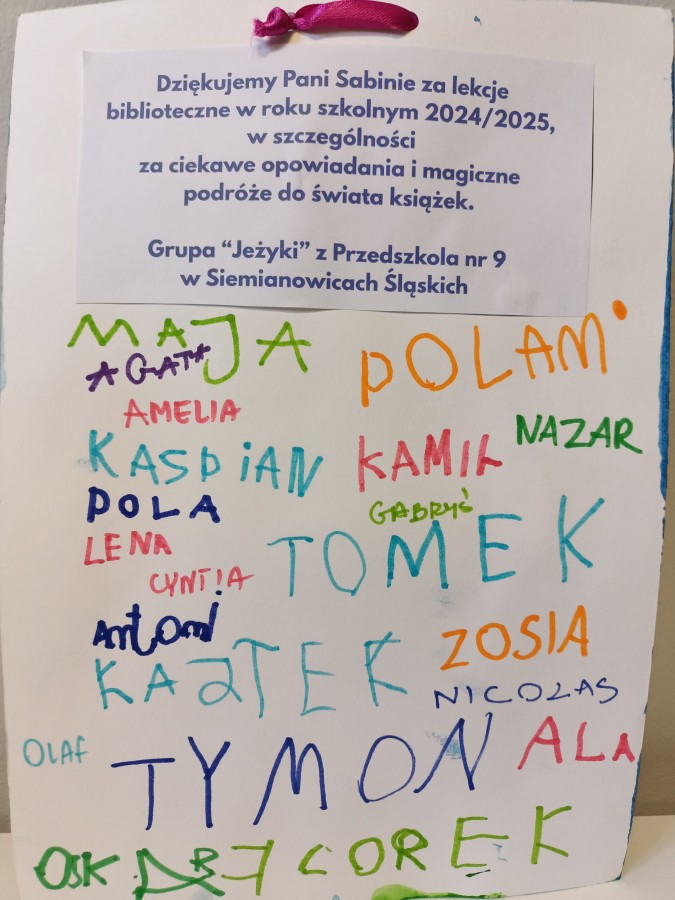 Dziękujemy Pani Sabinie za lekcje
biblioteczne w roku szkolnym 2024/2025,
w szczególności
za ciekawe opowiadania i magiczne
podróże do świata książek.
Grupa “Jeżyki” z Przedszkola nr 9
w Siemianowicach Śląskich
MAJA
POLA M.
AGATA
AMELIA
NAZAR
KASPIAN
KAMIL
POLA
GABRYŚ
LENA
TOMEK
CYNTIA
Antoni
ZOSIA
KAJTEK
NICOLAS
OLAF
TYMON
ALA
OSKAR